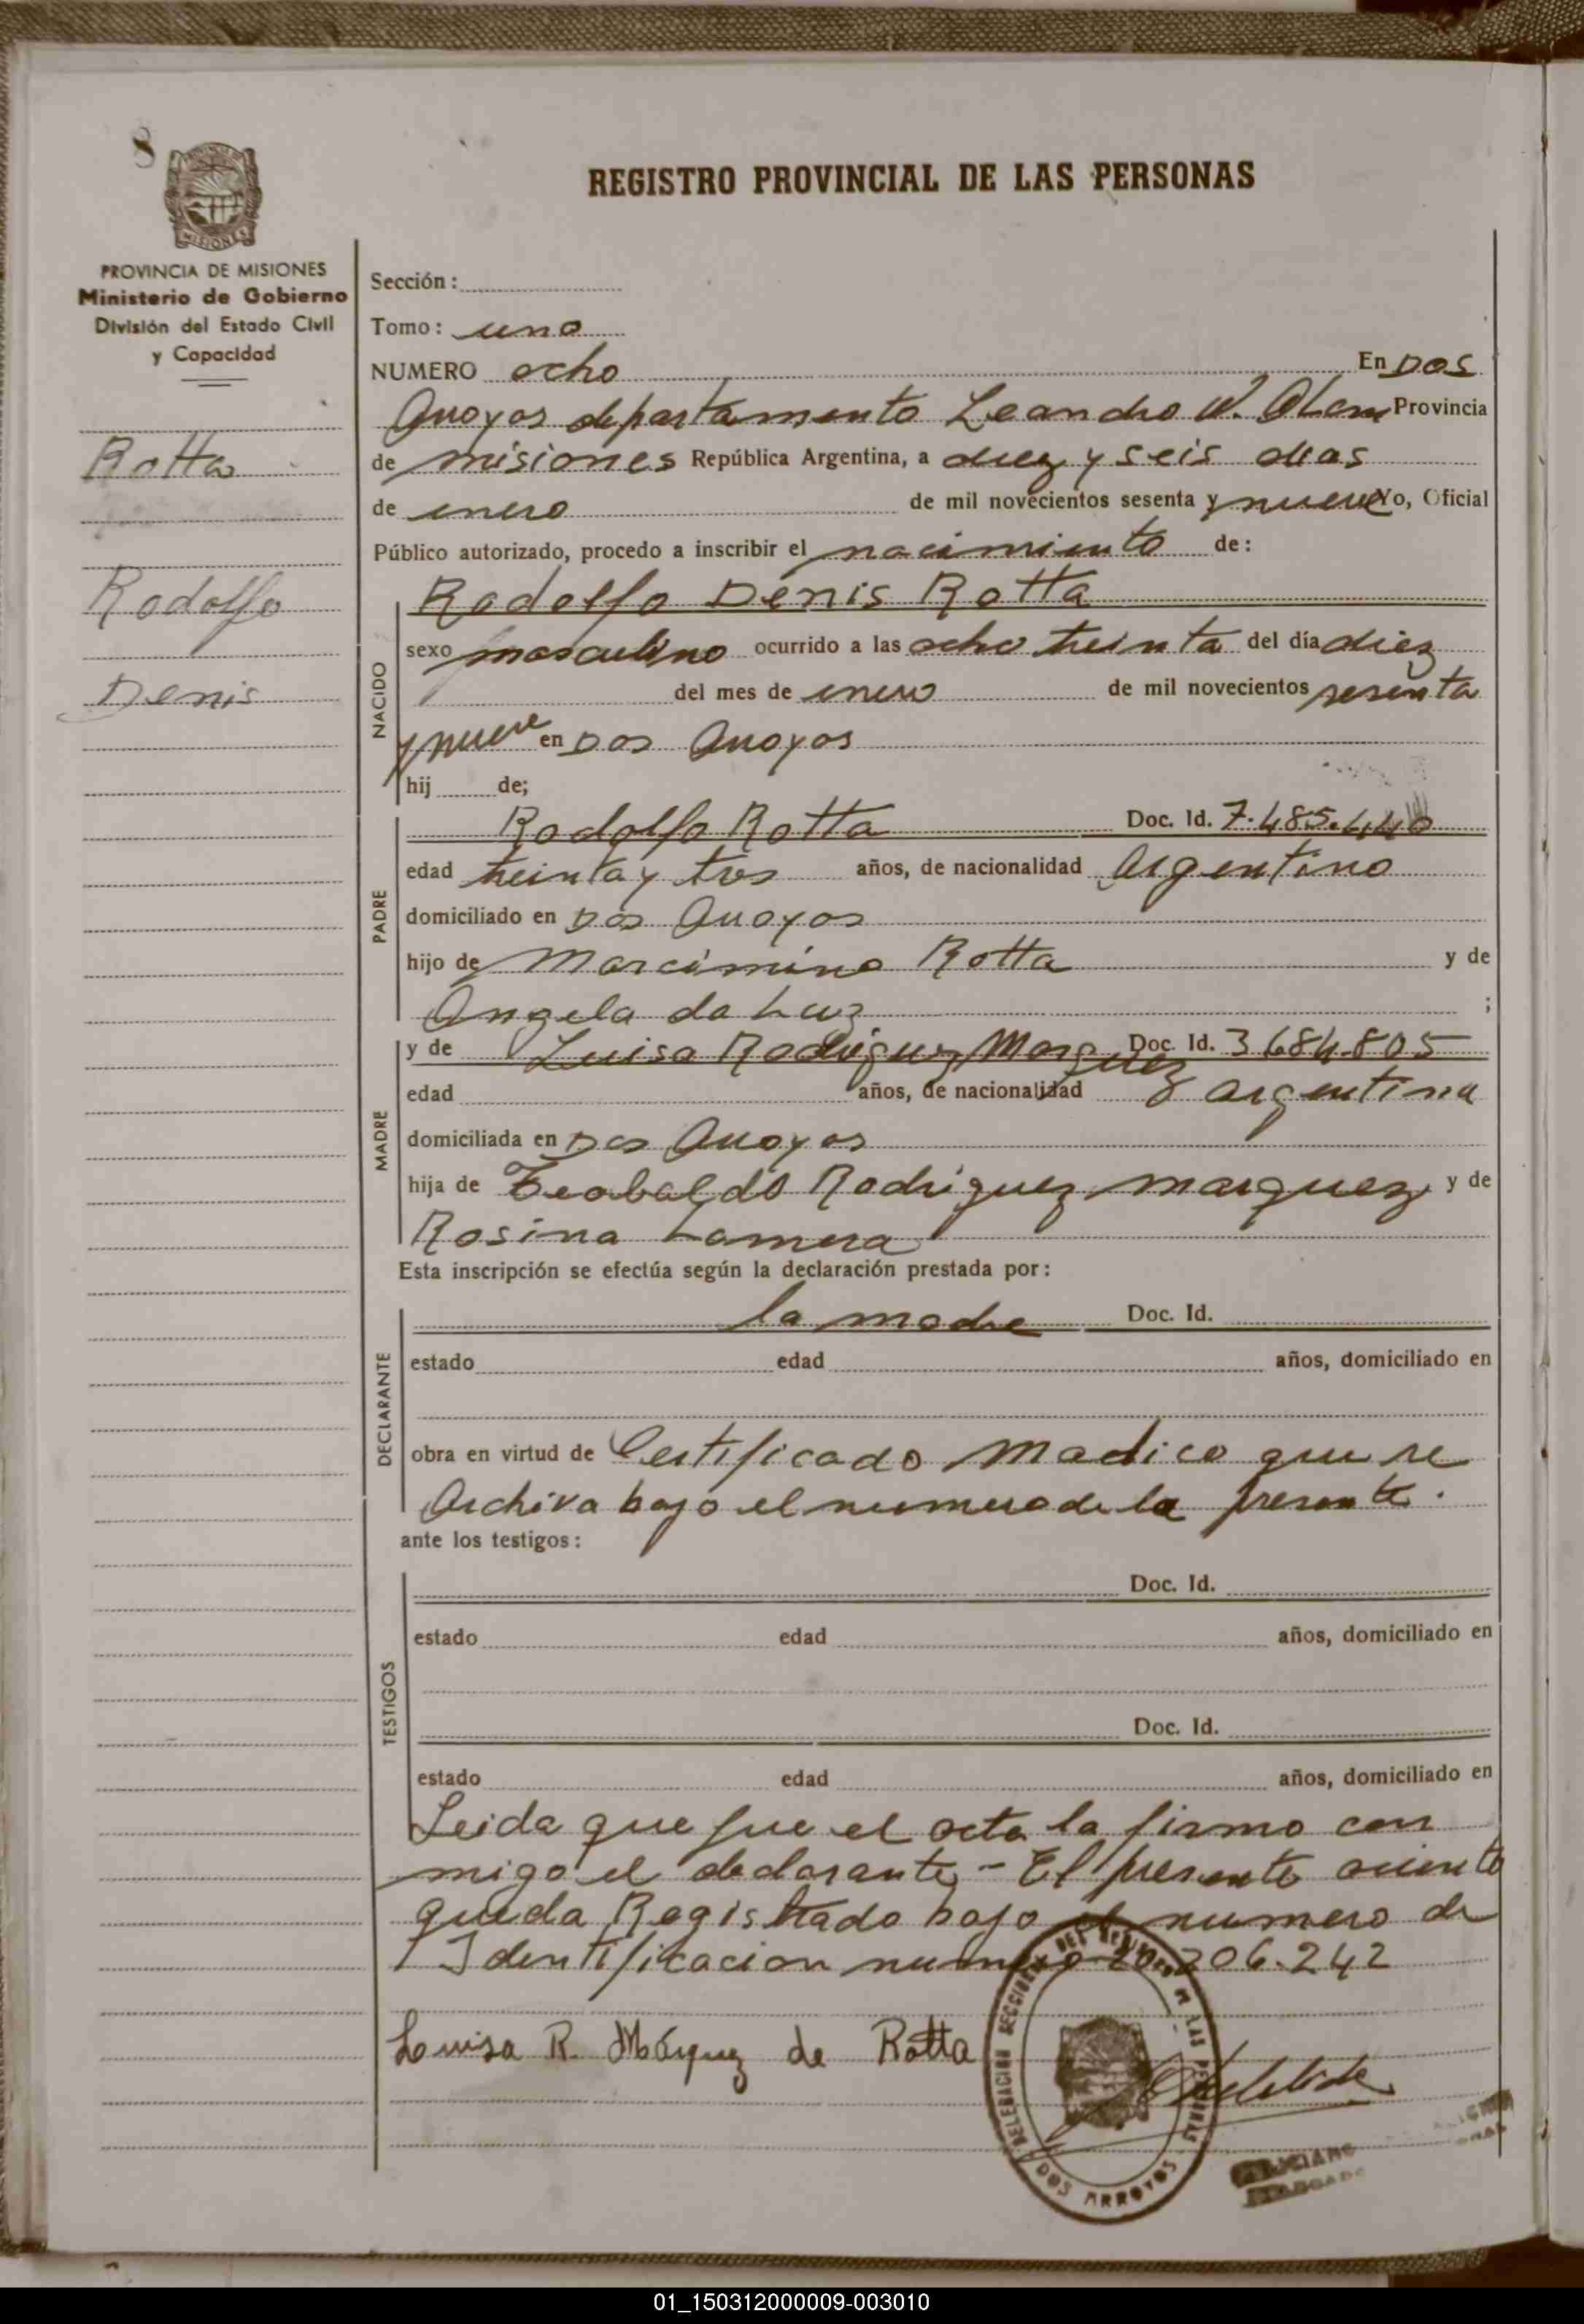 8
MISIONES
PROVINCIA DE MISIONES
Ministerio de Gobierno
División del Estado Civil
y Capacidad
Rotta
Rodolfo
Denis
REGISTRO PROVINCIAL DE LAS PERSONAS
Sección:
Tomo: uno
NUMERO ocho En Dos
Arroyos departamento Leandro N. Alem Provincia
de misiones República Argentina, a diez y seis dias
de enero de mil novecientos sesenta y nueve Yo, Oficial
Público autorizado, procedo a inscribir el nacimiento de:
NACIDO
Rodolfo Denis Rotta
sexo masculino ocurrido a las ocho treinta del día diez
del mes de enero de mil novecientos sesenta
y nueve en Dos Arroyos
hij de;
PADRE
Rodolfo Rotta Doc. Id. 7.485.440
edad treinta y tres años, de nacionalidad Argentino
domiciliado en Dos Arroyos
hijo de Marcimino Rotta y de
Angela da Luz ;
MADRE
y de Luisa Rodriguez Marquez Doc. Id. 3684.805
edad años, de nacionalidad argentina
domiciliada en Dos Arroyos
hija de Teobaldo Rodriguez marquez y de
Rosina Lamera
Esta inscripción se efectúa según la declaración prestada por:
DECLARANTE
la madre Doc. Id.
estado edad años, domiciliado en
obra en virtud de Certificado Madico que se
Archiva bajo el numero de la presente.
ante los testigos:
TESTIGOS
Doc. Id.
estado edad años, domiciliado en
Doc. Id.
estado edad años, domiciliado en
Leida que fue el acta la firmo con
migo el declarante - El presente asiento
queda Registrado bajo el numero de
Identificacion numero 20.206.242
Luisa R. Márquez de Rotta
DELEGACION SECCIONAL DEL REGISTRO DE LAS PERSONAS
DOS ARROYOS
01_150312000009-003010